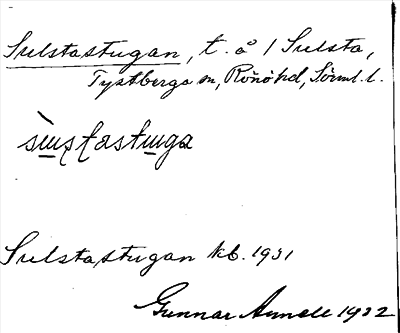 Sulstastugan, t. å 1 Sulsta,
Tystberga sn, Rönö hd, Sörml. l.
Sulstastugan kb. 1931
Gunnar Annell 1932